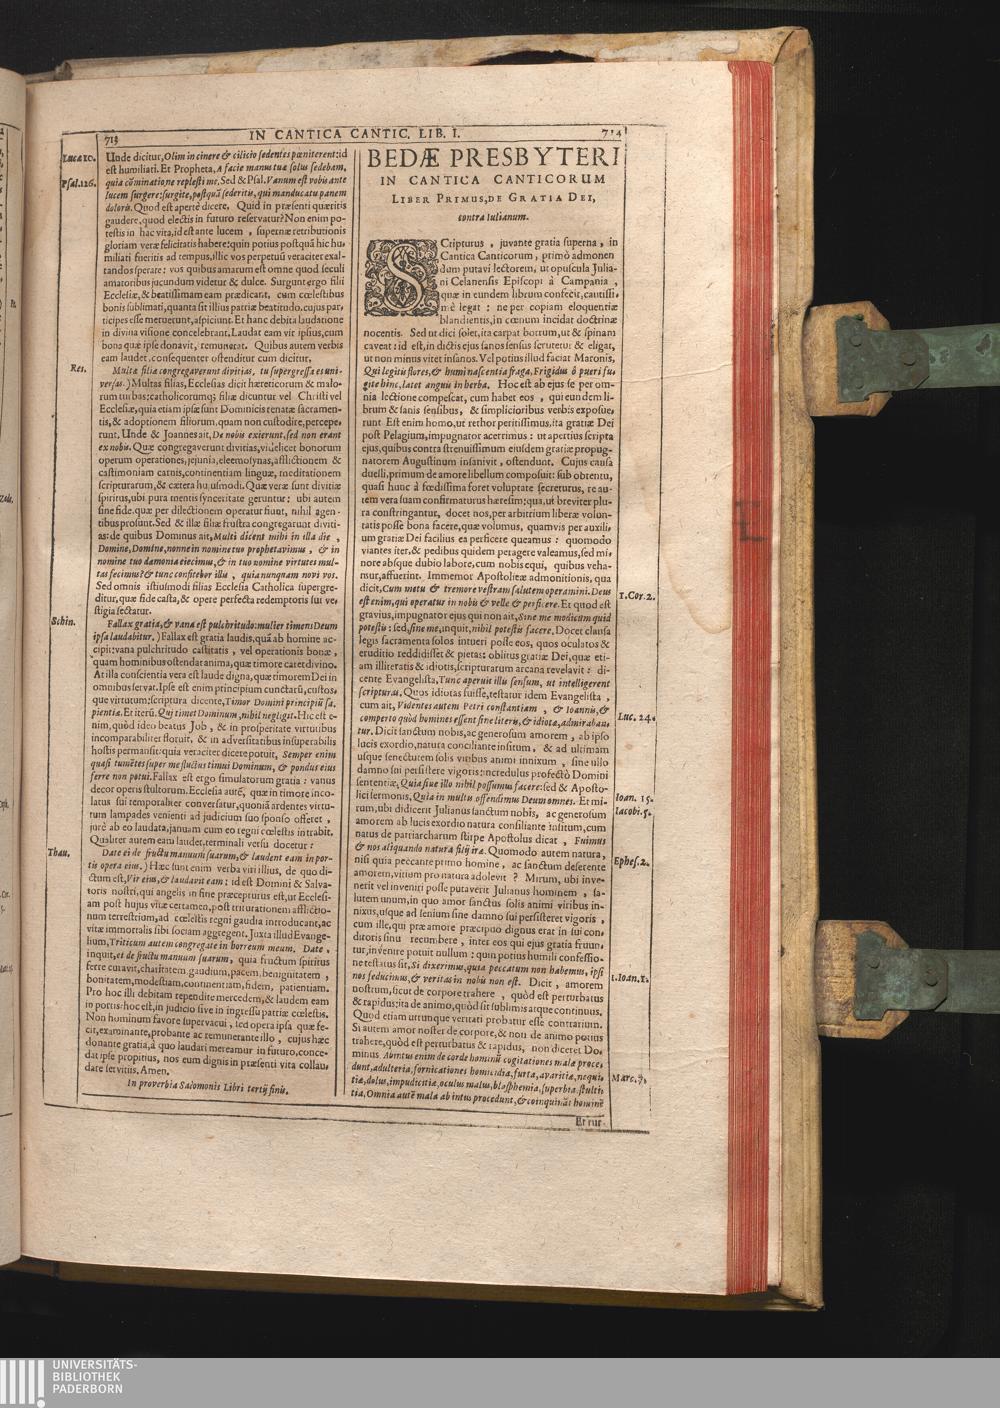 713
IN CANTICA CANTIC. LIB. I.
714
Lucæ 10.
Psal. 126.
Res.
Schin.
Thau.
Unde dicitur, Olim in cinere & cilicio sedentes pœniterent: id
est humiliati. Et Propheta, A facie manus tuæ solus sedebam,
quia cõminatione replesti me, Sed & Psal. Vanum est vobis ante
lucem surgere: surgite, postquã sederitis, qui manducatis panem
doloris. Quod est apertè dicere, Quid in præsenti quæritis
gaudere, quod electis in futuro reservatur? Non enim po-
testis in hac vita, id est ante lucem, supernæ retributionis
gloriam veræ felicitatis habere: quin potius postquã hic hu-
miliati fueritis ad tempus, illic vos perpetuò veraciter exal-
tandos sperate: vos quibus amarum est omne quod seculi
amatoribus jucundum videtur & dulce. Surgunt ergo filii
Ecclesiæ, & beatissimam eam prædicant, cum cœlestibus
bonis sublimati, quanta sit illius patriæ beatitudo, cujus par-
ticipes esse meruerunt, aspiciunt. Et hanc debita laudatione
in divina visione concelebrant. Laudat eam vir ipsius, cum
bona quæ ipse donavit, remunerat. Quibus autem verbis
eam laudet, consequenter ostenditur cum dicitur,
Multæ filiæ congregaverunt divitias, tu supergressa es uni-
versas.) Multas filias, Ecclesias dicit hæreticorum & malo-
rum turbas: catholicorumq; filiæ dicuntur vel Christi vel
Ecclesiæ, quia etiam ipsæ sunt Dominicis renatæ sacramen-
tis, & adoptionem filiorum, quam non custodire, percepe-
runt. Unde & Joannes ait, De nobis exierunt, sed non erant
ex nobis. Quæ congregaverunt divitias, videlicet bonorum
operum operationes, jejunia, eleemosynas, afflictionem &
castimoniam carnis, continentiam linguæ, meditationem
scripturarum, & cætera hujusmodi. Quæ veræ sunt divitiæ
spiritus, ubi pura mentis synceritate geruntur: ubi autem
sine fide, quæ per dilectionem operatur fiunt, nihil agen-
tibus prosunt. Sed & illæ filiæ frustra congregarunt diviti-
as: de quibus Dominus ait, Multi dicent mihi in illa die,
Domine, Domine, nonne in nomine tuo prophetavimus, & in
nomine tuo dæmonia eiecimus, & in tuo nomine virtutes mul-
tas fecimus? & tunc confitebor illis, quia nunquam novi vos.
Sed omnis istiusmodi filias Ecclesia Catholica supergre-
ditur, quæ fide casta, & opere perfecta redemptoris sui ve-
stigia sectatur.
Fallax gratia, & vana est pulchritudo: mulier timens Deum
ipsa laudabitur.) Fallax est gratia laudis, quã ab homine ac-
cipit: vana pulchritudo castitatis, vel operationis bonæ,
quam hominibus ostendat anima, quæ timore caret divino.
At illa conscientia vera est laude digna, quæ timorem Dei in
omnibus servat. Ipse est enim principium cunctarũ, custos-
que virtutum: scriptura dicente, Timor Domini principiũ sa-
pientiæ. Et iterũ. Qui timet Dominum, nihil negligit. Hic est e-
nim, quòd ideo beatus Job, & in prosperitate virtutibus
incomparabiliter floruit, & in adversitatibus insuperabilis
hostis permansit: quia veraciter dicere potuit, Semper enim
quasi tumẽtes super me fluctus timui Dominum, & pondus eius
ferre non potui. Fallax est ergo simulatorum gratia: vanus
decor operis stultorum. Ecclesia autẽ, quæ in timore inco-
latus sui temporaliter conversatur, quoniã ardentes virtu-
tum lampades venienti ad judicium suo sponso offeret,
jurè ab eo laudata, januam cum eo regni cœlestis intrabit.
Qualiter autem eam laudet, terminali versu docetur:
Date ei de fructu manuum suarum, & laudent eam in por-
tis opera eius.) Hæc sunt enim verba viri illius, de quo di-
ctum est, Vir eius, & laudavit eam: id est Domini & Salva-
toris nostri, qui angelis in fine præcepturus est, ut Ecclesi-
am post hujus vitæ certamen, post triturationem afflictio-
num terrestrium, ad cœlestis regni gaudia introducant, ac
vitæ immortalis sibi sociam aggregent. Juxta illud Evange-
lium, Triticum autem congregate in horreum meum. Date,
inquit, ei de fructu manuum suarum, quia fructum spiritus
ferre curavit, charitatem, gaudium, pacem, benignitatem,
bonitatem, modestiam, continentiam, fidem, patientiam.
Pro hoc illi debitam rependite mercedem, & laudem eam
in portis: hoc est, in judicio sive in ingressu patriæ cœlestis.
Non hominum favore supervacui, sed opera ipsa quæ fe-
cit, examinante, probante ac remunerante illo, cujus hæc
donante gratia, à quo laudari mereamur in futuro, conce-
dat ipse propitius, nos eum dignis in præsenti vita collau-
dare servitiis. Amen.
In proverbia Salomonis Libri tertij finis.
BEDÆ PRESBYTERI
IN CANTICA CANTICORUM
LIBER PRIMUS, DE GRATIA DEI,
contra Iulianum.
SCripturus, juvante gratia superna, in
Cantica Canticorum, primò admonen
dum putavi lectorem, ut opuscula Julia-
ni Celanensis Episcopi à Campania,
quæ in eundem librum confecit, cautissi-
mè legat: ne per copiam eloquentiæ
blandientis, in cœnum incidat doctrinæ
nocentis. Sed ut dici solet, ita carpat botrum, ut & spinam
caveat: id est, in dictis ejus sanos sensus scrutetur & eligat,
ut non minus vitet insanos. Vel potius illud faciat Maronis,
Qui legitis flores, & humi nascentia fraga, Frigidus ô pueri fu-
gite hinc, latet anguis in herba. Hoc est ab ejus se per om-
nia lectione compescat, cum habet eos, qui eundem li-
brum & sanis sensibus, & simplicioribus verbis exposue-
runt. Est enim homo, ut rethor peritissimus, ita gratiæ Dei
post Pelagium, impugnator acerrimus: ut apertius scripta
ejus, quibus contra strenuissimum ejusdem gratiæ propug-
natorem Augustinum insanivit, ostendunt. Cujus causa
duelli, primum de amore libellum composuit: sub obtentu,
quasi hunc à fœdissima foret voluptate secreturus, re au-
tem vera suam confirmaturus hæresim: qua, ut breviter plu-
ra constringantur, docet nos, per arbitrium liberæ volun-
tatis posse bona facere, quæ volumus, quamvis per auxili-
um gratiæ Dei facilius ea perficere queamus: quomodo
viantes iter, & pedibus quidem peragere valeamus, sed mi-
nore absque dubio labore, cum nobis equi, quibus veha-
mur, affuerint. Immemor Apostolicæ admonitionis, qua
dicit, Cum metu & tremore vestram salutem operamini. Deus
est enim, qui operatur in nobis & velle & perficere. Et quod est
gravius, impugnator ejus qui non ait, Sine me modicum quid
potestis: sed, sine me, inquit, nihil potestis facere. Docet clausa
legis sacramenta solos intueri posse eos, quos oculatos &
eruditio reddidisset & pietas: oblitus gratiæ Dei, quæ eti-
am illiteratis & idiotis, scripturarum arcana revelavit: di-
cente Evangelista, Tunc aperuit illis sensum, ut intelligerent
scripturas. Quos idiotas fuisse, testatur idem Evangelista,
cum ait, Videntes autem Petri constantiam, & Ioannis, &
comperto quòd homines essent sine literis, & idiotæ, admiraban-
tur. Dicit sanctum nobis, ac generosum amorem, ab ipso
lucis exordio, natura conciliante insitum, & ad ultimam
usque senectutem solis viribus animi innixum, sine ullo
damno sui persistere vigoris: incredulus profectò Domini
sententiæ, Quia sine illo nihil possumus facere: sed & Aposto-
lici sermonis, Quia in multis offendimus Deum omnes. Et mi-
rum, ubi didicerit Julianus sanctum nobis, ac generosum
amorem ab lucis exordio natura consiliante insitum, cum
natus de patriarcharum stirpe Apostolus dicat, Fuimus
& nos aliquando natura filij iræ. Quomodo autem natura,
nisi quia peccante primo homine, ac sanctum deserente
amorem, vitium pro natura adolevit? Mirum, ubi inve-
nerit vel inveniri posse putaverit Julianus hominem, sa-
lutem unum, in quo amor sanctus solis animi viribus in-
nixus, usque ad senium sine damno sui persisteret vigoris,
cum ille, qui præ amore præcipuo dignus erat in sui con-
ditoris sinu recumbere, inter eos qui ejus gratia fruun-
tur, invenire potuit nullum: quin potius humili confessio-
ne testatus sit, Si dixerimus, quia peccatum non habemus, ipsi
nos seducimus, & veritas in nobis non est. Dicit, amorem
nostrum, sicut de corpore trahere, quòd est perturbatus
& rapidus: ita de animo, quòd sit sublimis atque continuus.
Quod etiam utrumque veritati probatur esse contrarium.
Si autem amor noster de corpore, & non de animo potius
trahere, quòd est perturbatus & rapidus, non diceret Do-
minus. Abintus enim de corde hominũ cogitationes malæ proce-
dunt, adulteria, fornicationes homicidia, furta, avaritiæ, nequi-
tiæ, dolus, impudicitiæ, oculus malus, blasphemia, superbia, stulti-
tia, Omnia autẽ mala ab intus procedunt, & coinquinãt hominẽ
1. Cor. 2.
Luc. 24.
Ioan. 15.
Iacobi. 5.
Ephes. 2.
1. Ioan. 1.
Marc. 7.
UNIVERSITÄTS-
BIBLIOTHEK
PADERBORN